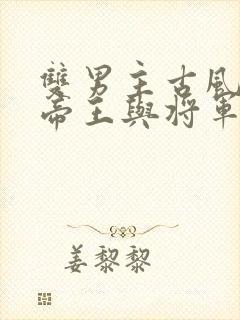 雙男主古風
帝王與將軍
姜黎黎